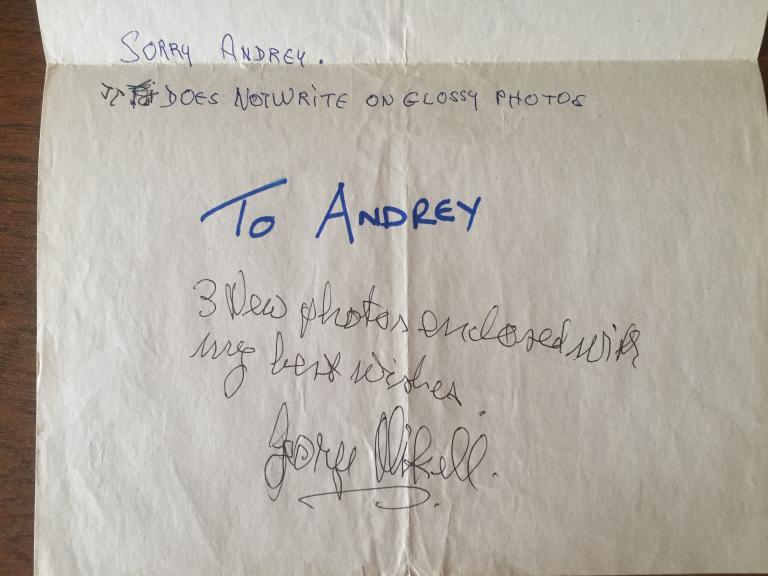 SORRY ANDREY.
IT DOES NOT WRITE ON GLOSSY PHOTOS
TO ANDREY
3 New photos enclosed with
my best wishes.
George Mikell.